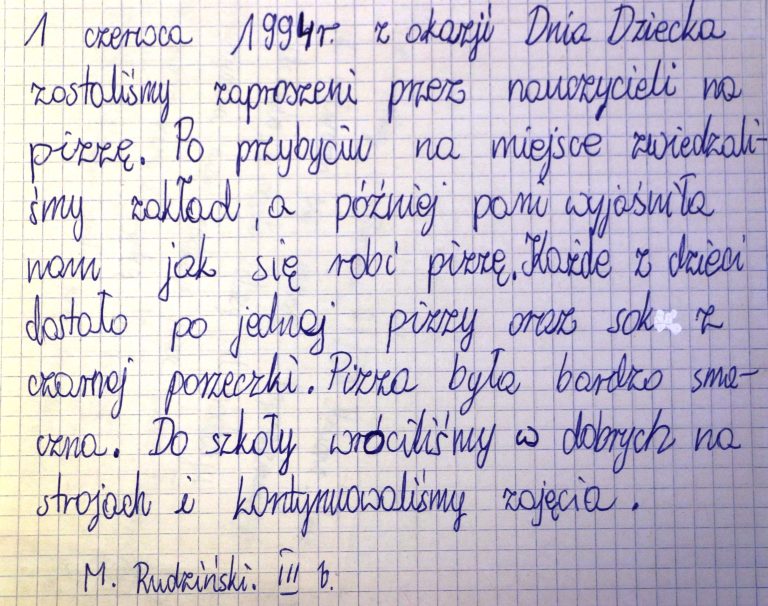 1 czerwca 1994r. z okazji Dnia Dziecka
zostaliśmy zaproszeni przez nauczycieli na
pizzę. Po przybyciu na miejsce zwiedzali-
śmy zakład, a później pani wyjaśniła
nam jak się robi pizzę. Każde z dzieci
dostało po jednej pizzy oraz sok z
czarnej porzeczki. Pizza była bardzo sma-
czna. Do szkoły wróciliśmy w dobrych na
strojach i kontynuowaliśmy zajęcia.
M. Rudziński. III b.